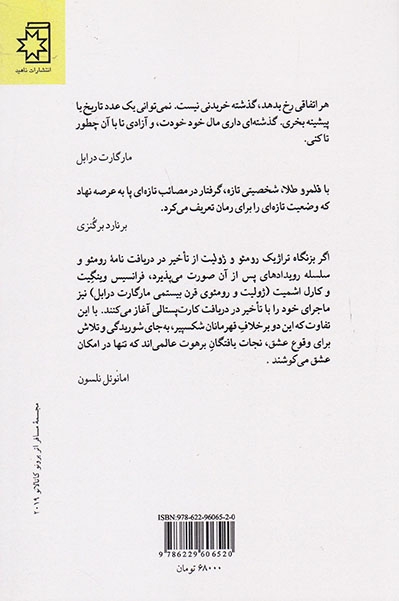 انتشارات ناهید
هر اتفاقی رخ بدهد، گذشته خریدنی نیست. نمی‌توانی یک عدد تاریخ یا
پیشینه بخری. گذشته‌ای داری مال خود خودت، و آزادی تا با آن چطور
تا کنی.
مارگارت درابل
با قلمرو طلا، شخصیتی تازه، گرفتار در مصائب تازه‌ای پا به عرصه نهاد
که وضعیت تازه‌ای را برای رمان تعریف می‌کرد.
برنارد برگنزی
اگر بزنگاه تراژیک رومئو و ژولیت از تأخیر در دریافت نامهٔ رومئو و
سلسله رویدادهای پس از آن صورت می‌پذیرد، فرانسیس وینگیت
و کارل اشمیت (ژولیت و رومئوی قرن بیستمی مارگارت درابل) نیز
ماجرای خود را با تأخیر در دریافت کارت‌پستالی آغاز می‌کنند. با این
تفاوت که این دو برخلاف قهرمانان شکسپیر، به‌جای شوریدگی و تلاش
برای وقوع عشق، نجات یافتگانِ برهوت عالمی‌اند که تنها در امکان
عشق می‌کوشند.
امانوئل نلسون
مجسمهٔ مسافر اثر برونو کاتالانو ۲۰۱۹
ISBN:978-622-96065-2-0
9 786229 606520
۶۸۰۰۰ تومان